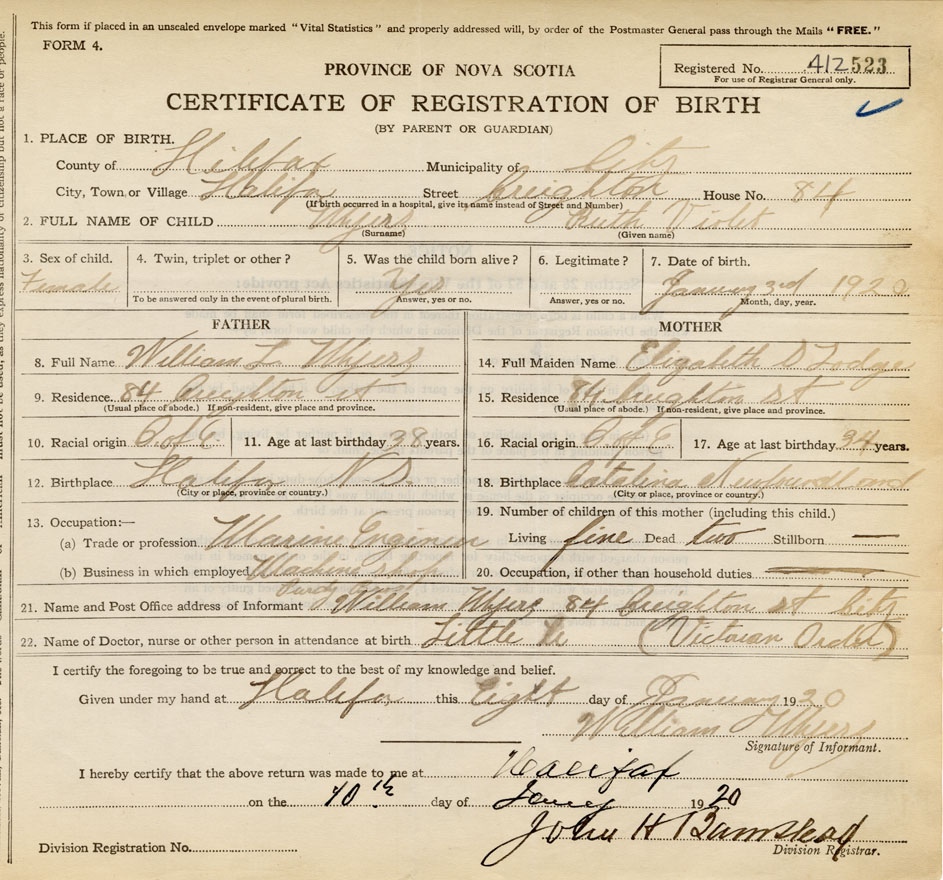 This form if placed in an unsealed envelope marked "Vital Statistics" and properly addressed will, by order of the Postmaster General pass through the Mails "FREE."
FORM 4.
Registered No. 412523
For use of Registrar General only.
PROVINCE OF NOVA SCOTIA
CERTIFICATE OF REGISTRATION OF BIRTH
(BY PARENT OR GUARDIAN)
1. PLACE OF BIRTH.
County of Hilifax Municipality of City
City, Town or Village Halifax Street Creighton House No. 84
(If birth occurred in a hospital, give its name instead of Street and Number)
2. FULL NAME OF CHILD Myers Ruth Violet
(Surname) (Given name)
3. Sex of child. 4. Twin, triplet or other? 5. Was the child born alive? 6. Legitimate? 7. Date of birth.
Female Yes January 3rd 1920
To be answered only in the event of plural birth. Answer, yes or no. Answer, yes or no. Month, day, year.
FATHER MOTHER
8. Full Name William L Myers 14. Full Maiden Name Elizabeth
9. Residence. 84 Creighton st 15. Residence 84 Creighton st
(Usual place of abode.) If non-resident, give place and province. (Usual place of abode.) If non-resident, give place and province.
10. Racial origin 11. Age at last birthday 38 years. 16. Racial origin 17. Age at last birthday 34 years.
12. Birthplace Halifax N S. 18. Birthplace Catalina Newfoundland
(City or place, province or country.) (City or place, province or country.)
13. Occupation:— 19. Number of children of this mother (including this child.)
(a) Trade or profession. Marine Engineer Living five Dead two Stillborn —
(b) Business in which employed Machine shop 20. Occupation, if other than household duties —
21. Name and Post Office address of Informant William Myers 84 Creighton st City
22. Name of Doctor, nurse or other person in attendance at birth Little (Victorian Order)
I certify the foregoing to be true and correct to the best of my knowledge and belief.
Given under my hand at Halifax this Eight day of January 1920
William Myers
Signature of Informant.
I hereby certify that the above return was made to me at Halifax
on the 10th day of Jany 1920
John H Barnstead
Division Registration No. Division Registrar.